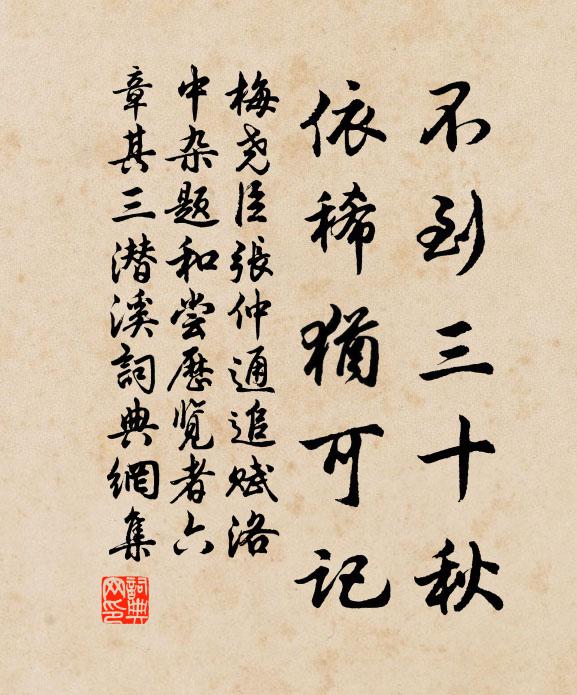 不到三十秋
依稀猶可记
梅尧臣張仲通追赋洛
中杂题和尝歷览者六
章其三潜溪詞典網集
詞典网印